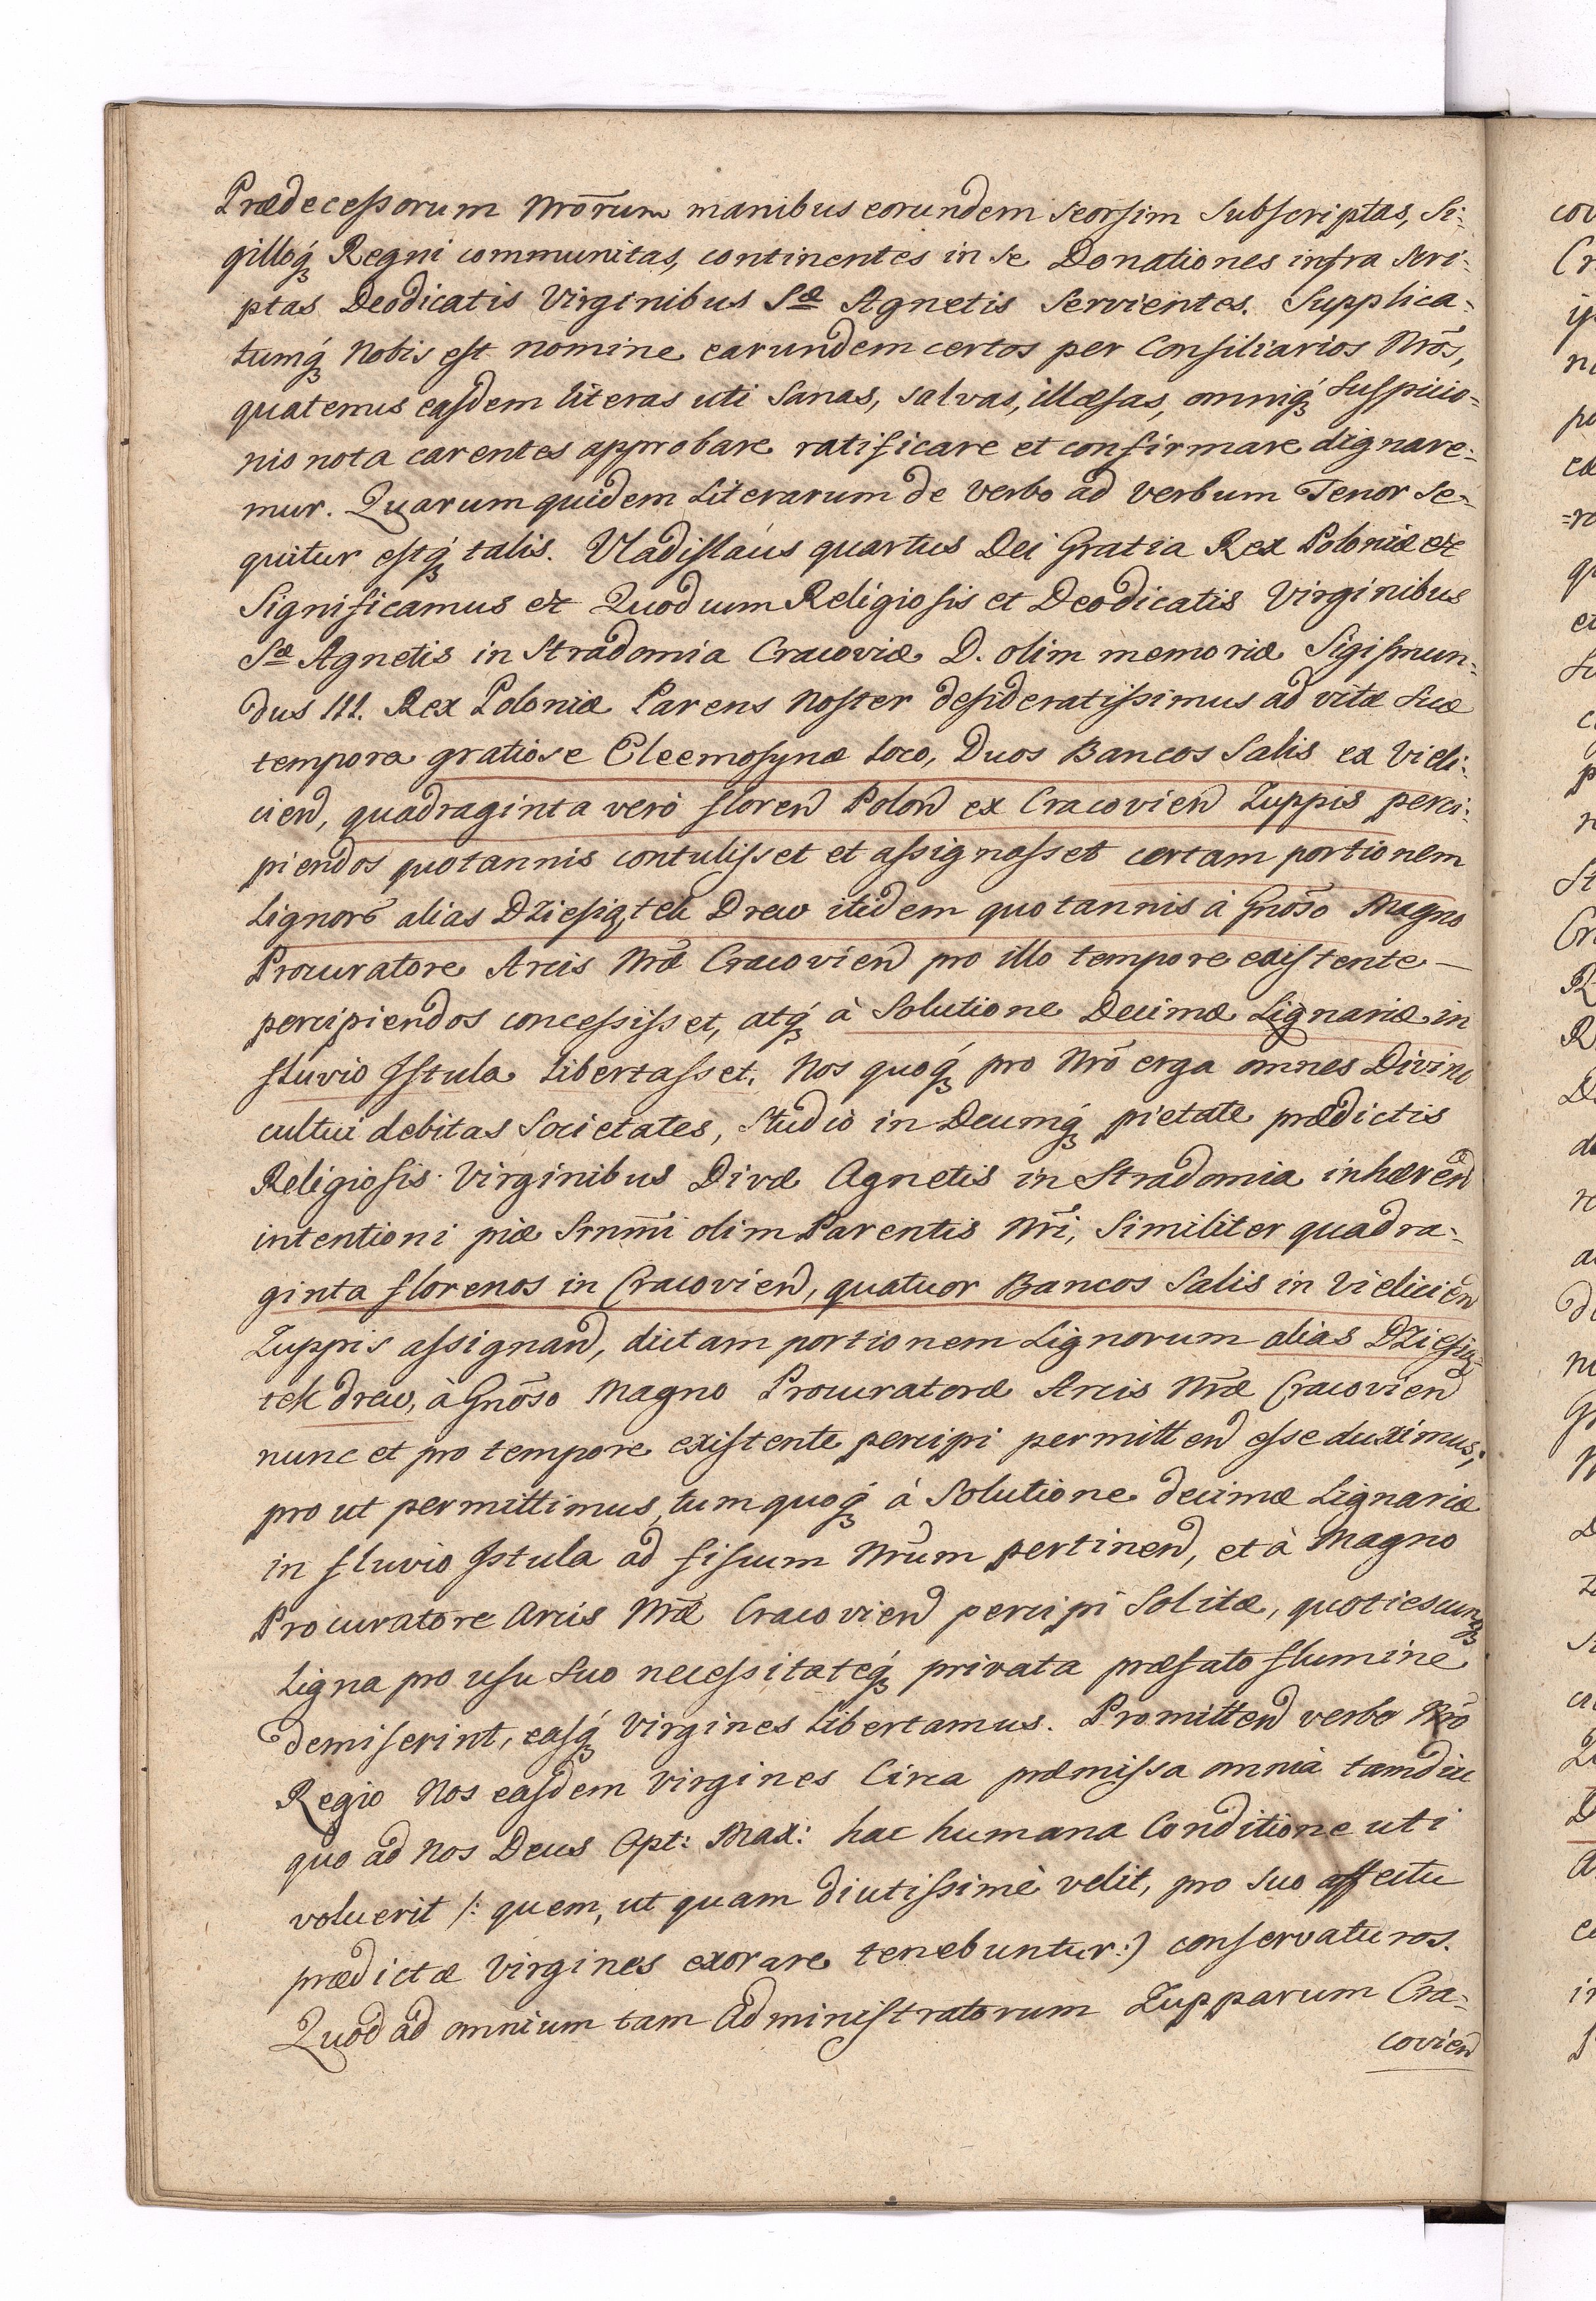 Prædecessorum Nrōrum manibus eorundem seorsim subscriptas, Si:
gilloq́ꝫ Regni communitas, continentes in se Donationes infra scri:
ptas Deodicatis Virginibus Sᵆ Agnetis servientes. Supplica:
tumq́ꝫ Nobis est nomine earundem certos per Consiliarios Nrōs,
quatenus easdem literas uti Sanas, salvas, illæsas, omniq́ꝫ suspicio:
nis nota carentes approbare ratificare et confirmare dignare:
mur. Quarum quidem Literarum de verbo ad verbum Tenor se:
quitur estq́ꝫ talis. Vladislaús quartus Dei Gratia Rex Poloniæ &c
Significamus &c Quod cum Religiosis et Deodicatis Virginibus
Sᵆ Agnetis in Stradomia Cracoviæ D. olim memoriæ Sigismun:
dus III. Rex Poloniæ Parens Noster desideratissimus ad vitæ suæ
tempora gratiose Eleemosynæ loco, Duos Bancos Salis ex Vieli:
cień, quadraginta verò floreń Poloń ex Cracovień Zuppis perci:
piendos quotannis contulisset et assignasset certam portionem
Lignorō alias Dziesiątek Drew itidem quotannis à Gnōso Magno
Procuratore Arcis Nrǣ Cracovień pro illo tempore existente —
percipiendos concessisset, atq́ꝫ à Solutione Decimæ Lignariæ in
fluvio Istula libertasset. Nos quoq́ꝫ pro Nrō erga omnes Divino
cultui debitas Societates, studio in Deumq́ꝫ pietate prædictis
Religiosis Virginibus Divæ Agnetis in Stradomia inhæreń
intentioni piæ Srnmī olim Parentis Nrī, similiter quadra:
ginta florenos in Cracovień, quatuor Bancos Salis in Vielicień
Zuppis assignań, dictam portionem Lignorum alias Dziesią:
tek drew, à Gnōso Magno Procuratoræ Arcis Nrǣ Cracovień
nunc et pro tempore existente percipi permitteń esse duximus,
pro ut permittimus, tum quoq́ꝫ à Solutione decimæ Lignariæ
in fluvio Istula ad fiscum Nrūm pertineń, et à Magno
Procuratore Arcis Nrǣ Cracovień percipi Solitæ, quotiescunqꝫ
Ligna pro usu suo necessitateq́ꝫ privata præfato flumine
demiserint, easq́ꝫ Virgines Libertamus. Promitteń verbo Nrō
Regio Nos easdem Virgines Circa præmissa omnia tamdiu
quo ad Nos Deus Opt: Max: hac humana Conditione uti
voluerit /: quem, ut quam diutissimè velit, pro suo affectu
prædictæ Virgines exorare tenebuntur:) conservaturos.
Quod ad omnium tam Administratorum Zupparum Cra:
covień